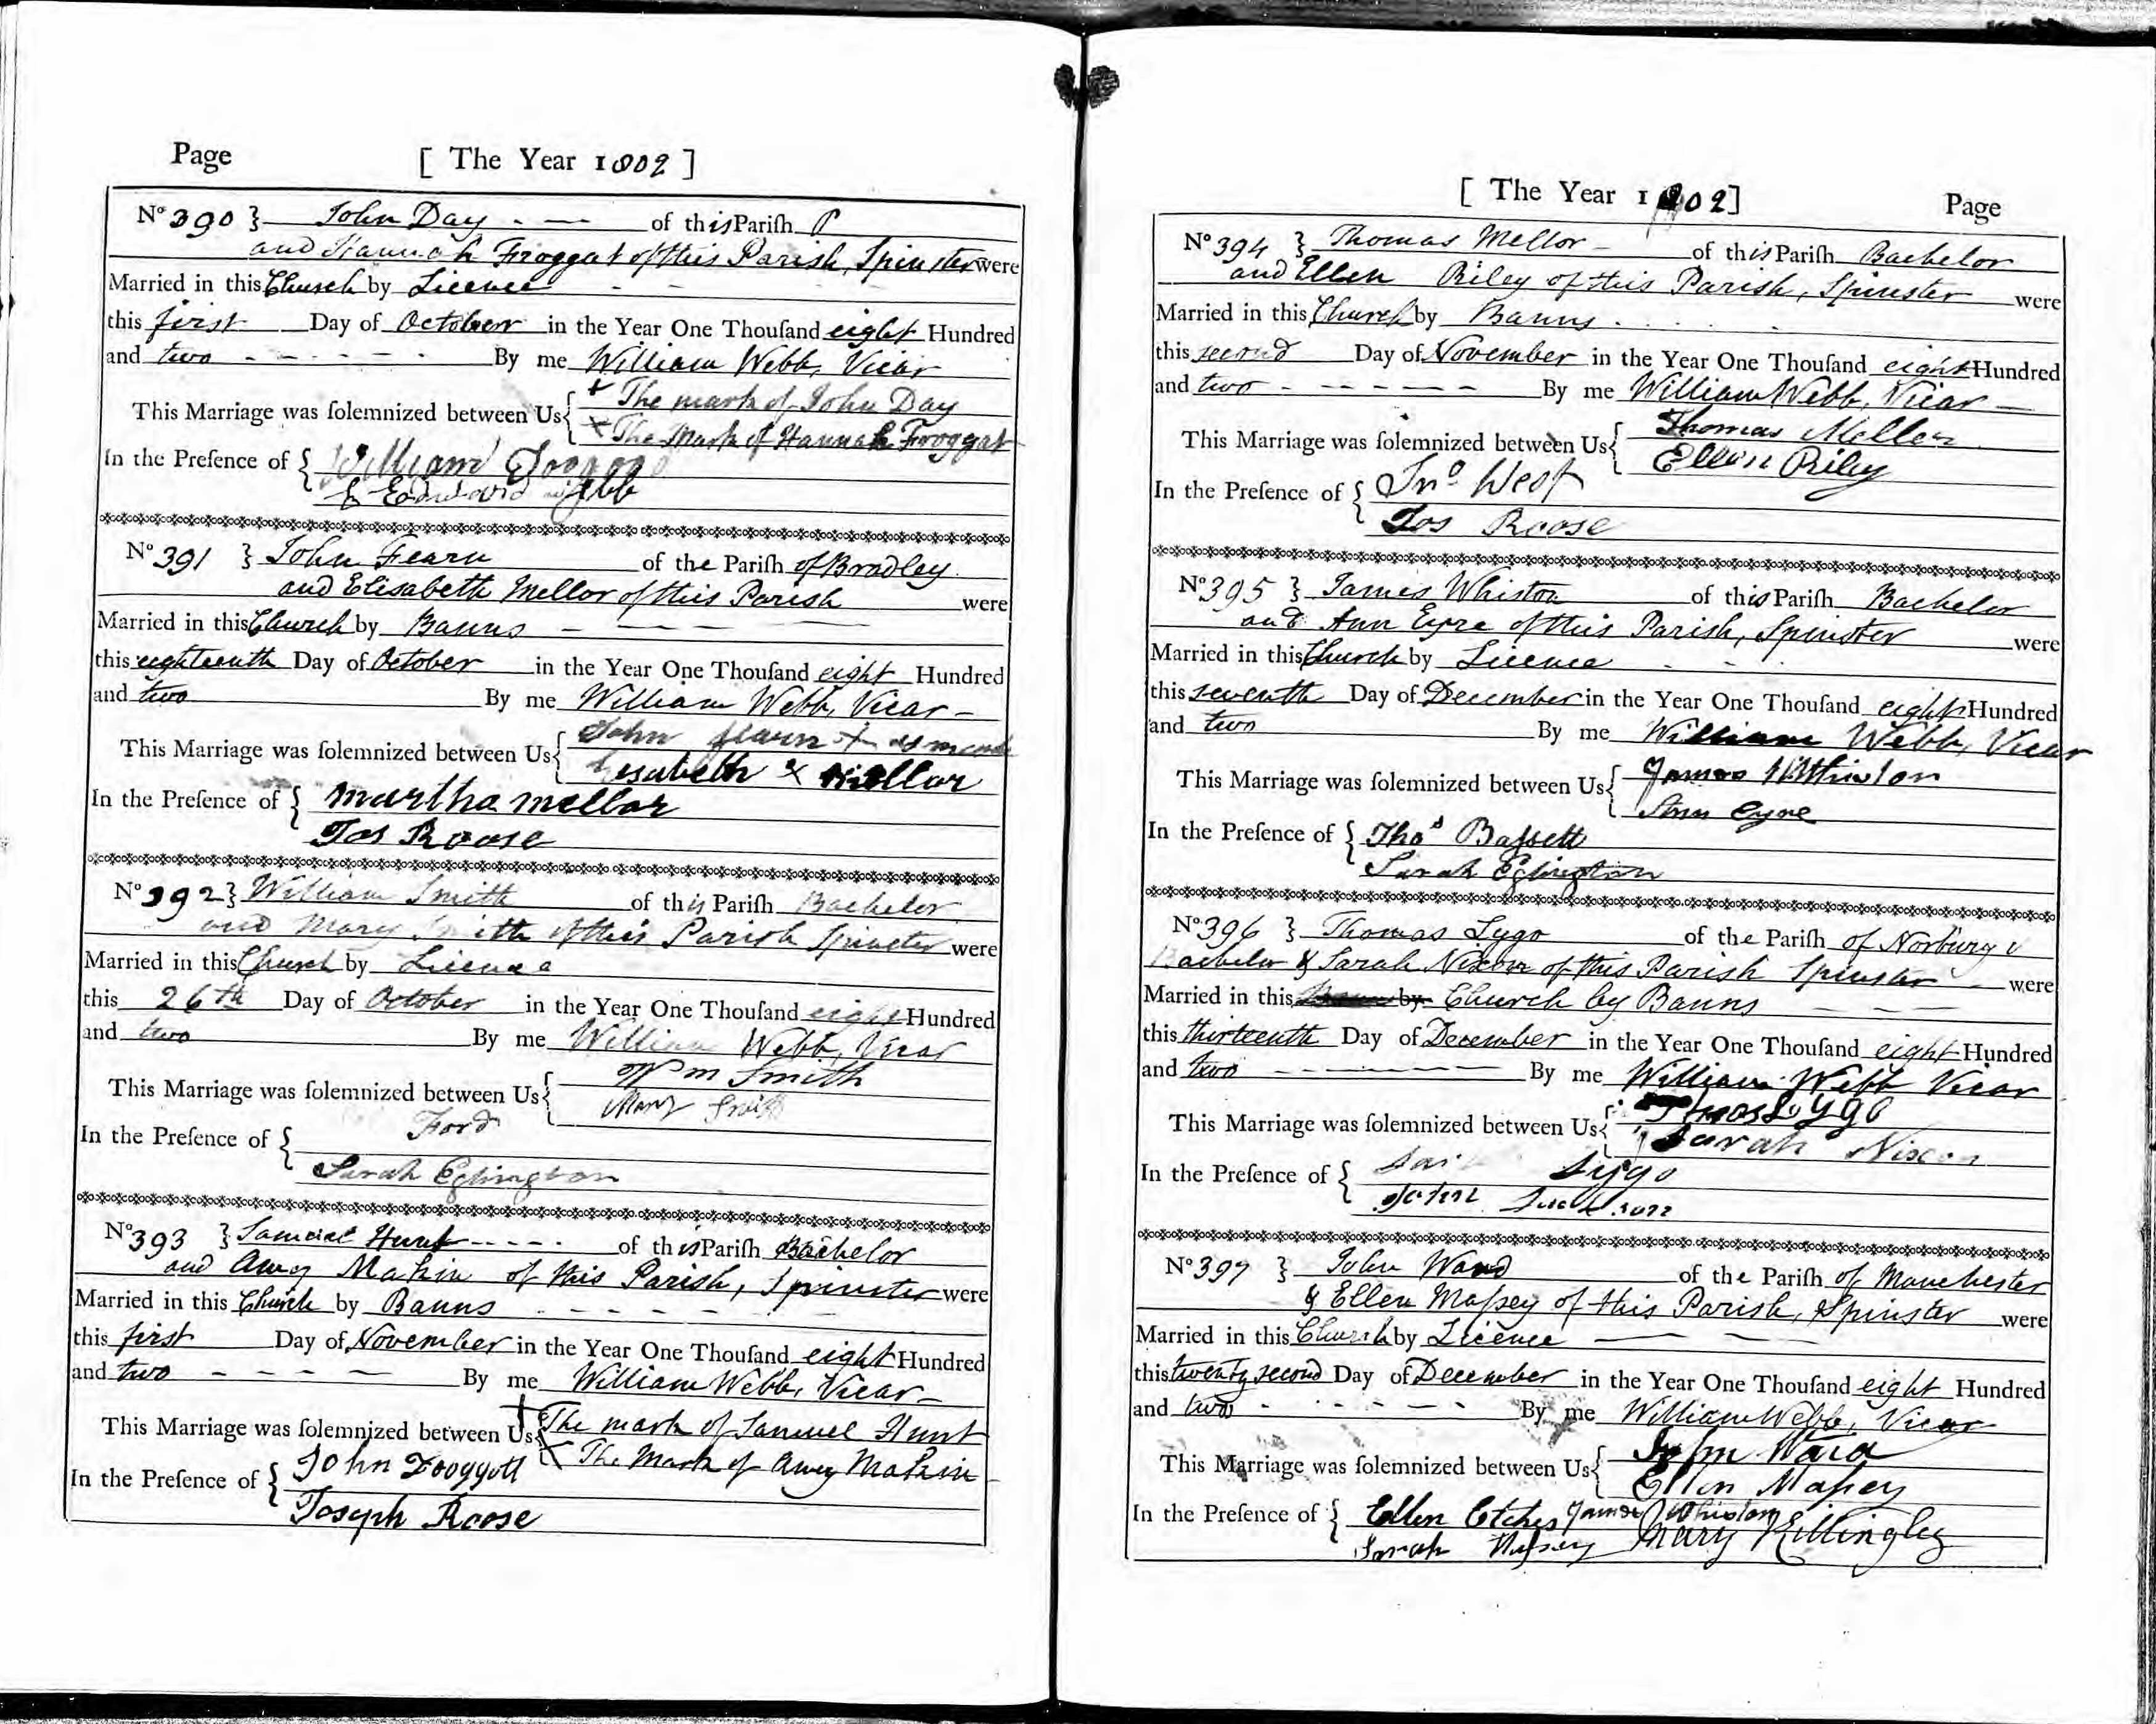 Page [ The Year 1802 ]
No 390 } John Day - — of this Parish P
and Hannah Froggat of this Parish, Spinster were
Married in this Church by Licence - -
this first Day of October in the Year One Thouſand eight Hundred
and two - - - - - - By me William Webb, Vicar
This Marriage was ſolemnized between Us { + The mark of John Day
× The Mark of Hannah Froggat
In the Preſence of { William
& Edward Webb
No 391 } John Fearn of the Pariſh of Bradley
and Elisabeth Mellor of this Parish were
Married in this Church by Banns - — — —
this eighteenth Day of October in the Year One Thouſand eight Hundred
and two By me William Webb, Vicar –
This Marriage was ſolemnized between Us { John fearn +
Elesabeth × Mellor
In the Preſence of { Martha mellor
Jos Roose
No 392 } William Smith of this Pariſh Bachelor
and Mary Smith of this Parish Spinster were
Married in this Church by Licence
this 26th Day of October in the Year One Thouſand eight Hundred
and two By me William Webb, Vicar
This Marriage was ſolemnized between Us { Wm Smith
Mary Smith
In the Preſence of { Ford
Sarah Eglington
No 393 } Samuel Hunt - - - - - of this Pariſh Bachelor
and Amey Makin of this Parish, Spinster were
Married in this Church by Banns - - - - -
this first Day of November in the Year One Thouſand eight Hundred
and two - - - — By me William Webb, Vicar –
This Marriage was ſolemnized between Us { + The mark of Samuel Hunt
× The Mark of Amey Makin
In the Preſence of { John Dooggott
Joseph Roose
[ The Year 1802 ] Page
No 394 } Thomas Mellor – of this Pariſh Bachelor
and Ellen Riley of this Parish, Spinster were
Married in this Church by Banns - - - -
this second Day of November in the Year One Thouſand eight Hundred
and two - - - - - - By me William Webb, Vicar —
This Marriage was ſolemnized between Us { Thomas Meller
Ellen Riley
In the Preſence of { Jno West
Jos Roose
No 395 } James Whiston of this Pariſh Bachelor
and Ann Eyre of this Parish, Spinster were
Married in this Church by Licence - - -
this seventh Day of December in the Year One Thouſand eight Hundred
and two By me William Webb, Vicar
This Marriage was ſolemnized between Us { James Whiston
Ann Eyre
In the Preſence of { Thos Baſsett
Sarah Eglington
No 396 } Thomas Lygo of the Pariſh of Norbury
Bachelor & Sarah Nixon of this Parish Spinster – were
Married in this by Church by Banns — — —
this thirteenth Day of December in the Year One Thouſand eight Hundred
and two - - - - - By me William Webb Vicar
This Marriage was ſolemnized between Us { Thos Lygo
Sarah Nixon
In the Preſence of { Lygo
John
No 397 } John Ward of the Pariſh of Manchester
& Ellen Maſsey of this Parish, Spinster were
Married in this Church by Licence — — —
this twenty second Day of December in the Year One Thouſand eight Hundred
and two - - - - - - By me William Webb, Vicar
This Marriage was ſolemnized between Us { John Ward
Ellen Maſsey
In the Preſence of { Ellen Etches James Whiston
Sarah Maſsey Mary Killingley